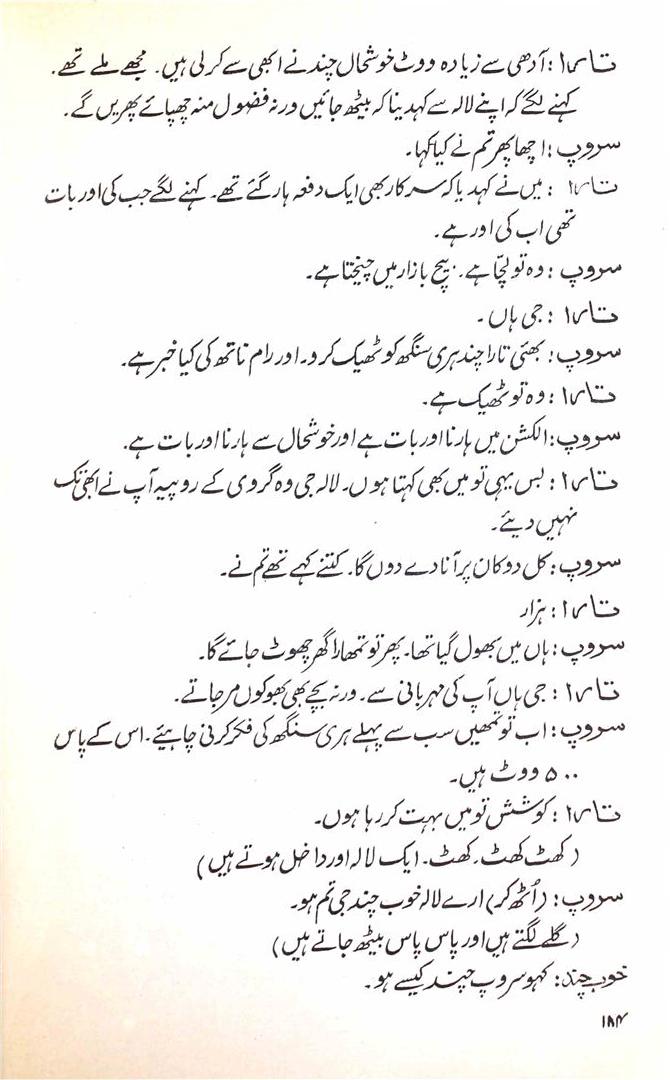 تارا : آدھی سے زیادہ ووٹ خوشحال چند نے ابھی سے کر لی ہیں۔ مجھے ملے تھے۔
کہنے لگے کہ اپنے لالہ سے کہدینا کہ بیٹھ جائیں ورنہ فضول منہ چھپائے پھریں گے۔
سروپ : اچھا پھر تم نے کیا کہا۔
تارا : میں نے کہدیا کہ سرکار بھی ایک دفعہ ہار گئے تھے۔ کہنے لگے جب کی اور بات
تھی اب کی اور ہے۔
سروپ : وہ تو لچّا ہے۔ بیچ بازار میں چیختا ہے۔
تارا : جی ہاں۔
سروپ : بھئی تارا چند ہری سنگھ کو ٹھیک کرو۔ اور رام ناتھ کی کیا خبر ہے۔
تارا : وہ تو ٹھیک ہے۔
سروپ : الکشن میں ہارنا اور بات ہے اور خوشحال سے ہارنا اور بات ہے۔
تارا : بس یہی تو میں بھی کہتا ہوں۔ لالہ جی وہ گروی کے روپیہ آپ نے ابھی تک
نہیں دیئے۔
سروپ : کل دوکان پر آنا دے دوں گا۔ کتنے کہے تھے تم نے۔
تارا : ہزار
سروپ : ہاں میں بھول گیا تھا۔ پھر تو تمھارا گھر چھوٹ جائے گا۔
تارا : جی ہاں آپ کی مہربانی سے۔ ورنہ بچے بھی بھوکوں مر جاتے۔
سروپ : اب تو تمھیں سب سے پہلے ہری سنگھ کی فکر کرنی چاہیئے۔ اس کے پاس
۵۰۰ ووٹ ہیں۔
تارا : کوشش تو میں بہت کر رہا ہوں۔
(کھٹ کھٹ۔ کھٹ۔ ایک لالہ اور داخل ہوتے ہیں)
سروپ : (اُٹھ کر) ارے لالہ خوب چند جی تم ہو۔
(گلے لگتے ہیں اور پاس پاس بیٹھ جاتے ہیں)
خوب چند : کہو سروپ چند کیسے ہو۔
۱۸۴